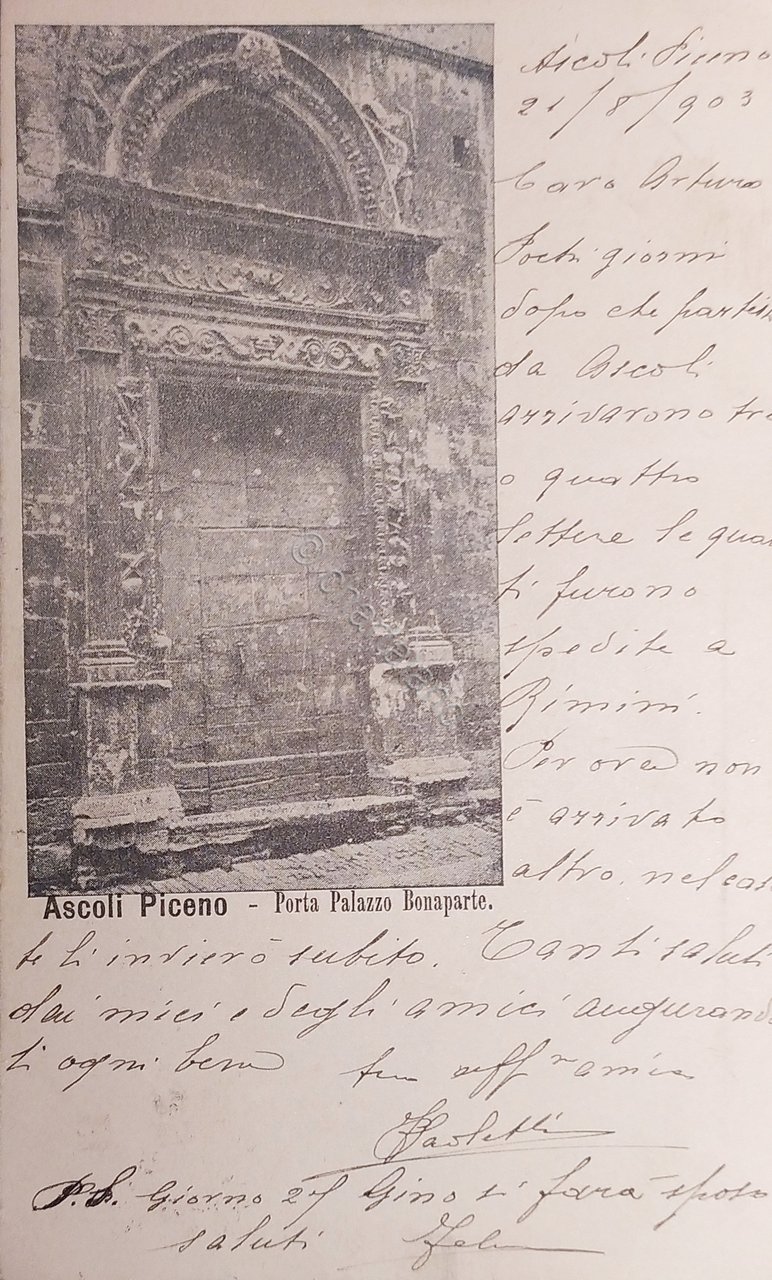 Ascoli Piceno
21/8/903
Caro Arturo
Pochi giorni
dopo che partisti
da Ascoli
arrivarono tre
o quattro
lettere le quali
ti furono
spedite a
Rimini.
Per ora non
è arrivato
altro, nel caso
te li invierò subito. Tanti saluti
dai miei e degli amici augurando
ti ogni bene
tuo aff.mo amico
Paoletti
P.S. Giorno Gino si farà sposo
saluti
Ascoli Piceno - Porta Palazzo Bonaparte.